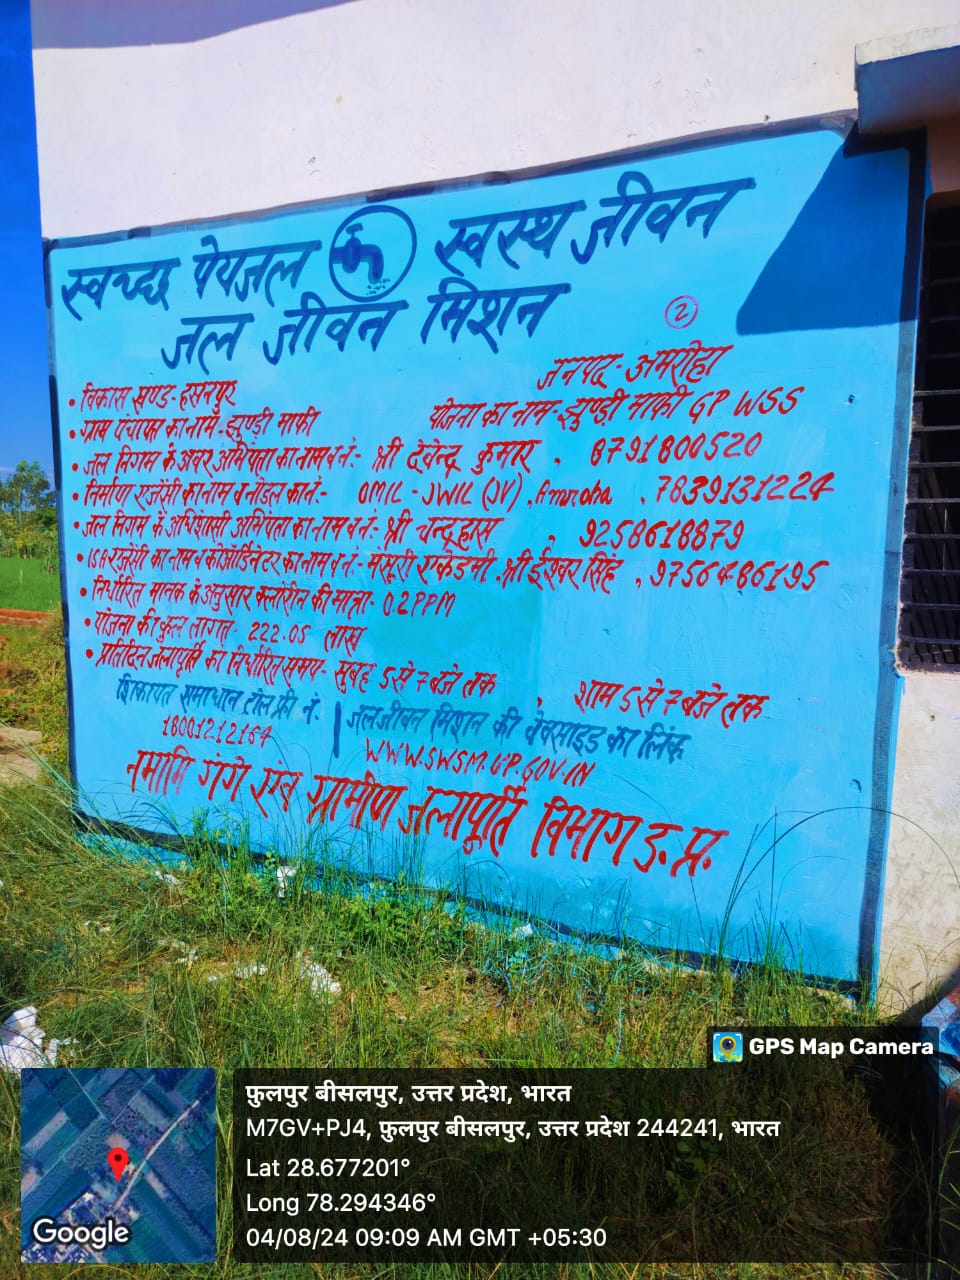 स्वच्छ पेयजल स्वस्थ जीवन
जल जीवन मिशन
2
जनपद-अमरोहा
• विकास खण्ड-हसनपुर
• ग्राम पंचायत का नाम-झुण्डी माफी योजना का नाम-झुण्डी माफी GP WSS
• जल निगम के अवर अभियंता का नाम व नं:- श्री देवेन्द्र कुमार , 8791800520
• निर्माण एजेंसी का नाम व नोडल का नं:- OMIL-JWIL (JV), Amroha , 7839131224
• जल निगम के अधिशासी अभियंता का नाम व नं:- श्री चन्द्रहास , 9258618879
• ISA एजेंसी का नाम व कोऑर्डिनेटर का नाम व नं:- मंसूरी एकेडमी, श्री ईश्वर सिंह , 9756486195
• निर्धारित मानक के अनुसार क्लोरीन की मात्रा- 0.2 PPM
• योजना की कुल लागत- 222.05 लाख
• प्रतिदिन जलापूर्ति का निर्धारित समय- सुबह 5 से 7 बजे तक , शाम 5 से 7 बजे तक
शिकायत समाधान टोल फ्री नं. जल जीवन मिशन की वेबसाइड का लिंक
18001212164 WWW.SWSM.UP.GOV.IN
नमामि गंगे एंव ग्रामीण जलापूर्ति विभाग उ.प्र.
GPS Map Camera
फुलपुर बीसलपुर, उत्तर प्रदेश, भारत
M7GV+PJ4, फुलपुर बीसलपुर, उत्तर प्रदेश 244241, भारत
Lat 28.677201°
Long 78.294346°
04/08/24 09:09 AM GMT +05:30
Google